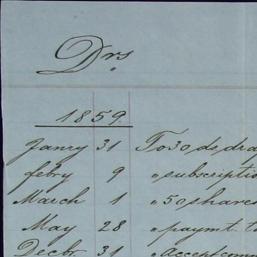 Drs
1859
Janry 31 To 30 ds, dra
febry 9 " subscriptio
March 1 " 50 shares
May 28 " paymt. t
Decbr 31 " Accept com